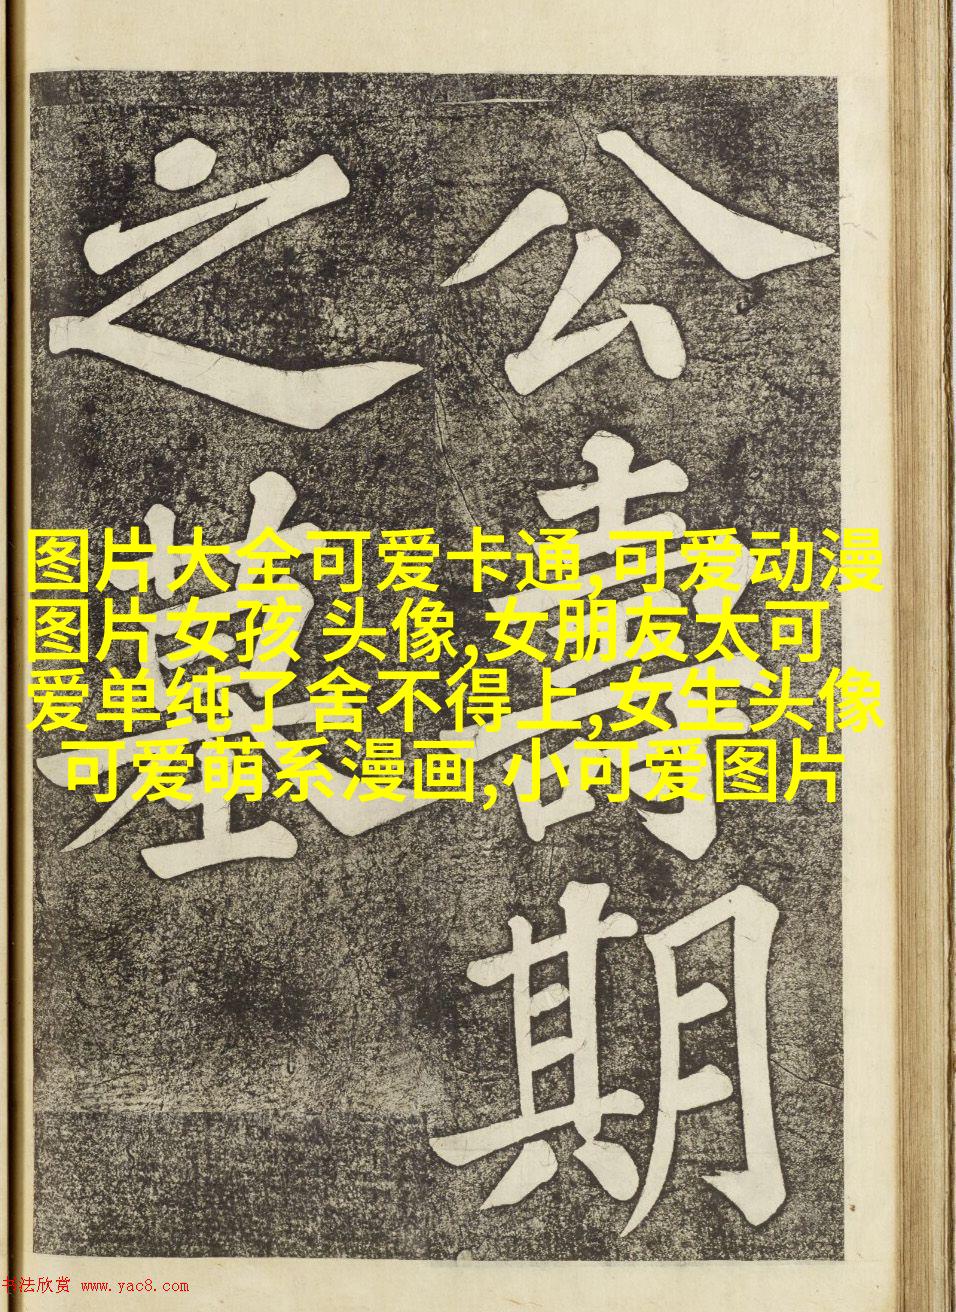 公壽期
之墓
图片大全可爱卡通,可爱动漫
图片女孩 头像,女朋友太可
爱单纯了舍不得上,女生头像
可爱萌系漫画,小可爱图片
书法欣赏 www.yac8.com